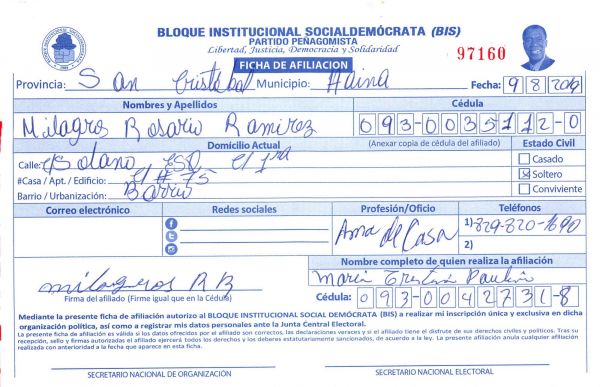 BLOQUE INSTITUCIONAL SOCIALDEMÓCRATA (BIS)
PARTIDO PEÑAGOMISTA
Libertad, Justicia, Democracia y Solidaridad
97160
FICHA DE AFILIACION
Provincia: San Cristobal Municipio: Haina Fecha: 9 8 2019
Nombres y Apellidos Cédula
Milagros Rosario Ramirez 093-0035112-0
Domicilio Actual (Anexar copia de cédula del afiliado) Estado Civil
Calle: C/Solano, ESQ. El 1ra Casado
#Casa / Apt. / Edificio: # 75 Soltero
Barrio / Urbanización: Barrio Conviviente
Correo electrónico Redes sociales Profesión/Oficio Teléfonos
Ama de Casa 1) 829-820-1690
2)
Nombre completo de quien realiza la afiliación
milagros R R Maria
Firma del afiliado (Firme igual que en la Cédula) Cédula: 093-0042731-8
Mediante la presente ficha de afiliación autorizo al BLOQUE INSTITUCIONAL SOCIAL DEMÓCRATA (BIS) a realizar mi inscripción única y exclusiva en dicha
organización política, así como a registrar mis datos personales ante la Junta Central Electoral.
La presente ficha de afiliación es válida si los datos ofrecidos por el afiliado son correctos, las declaraciones veraces y si el titular tiene el disfrute de sus derechos civiles y políticos. Tras su
recepción, sello y firmas autorizadas el afiliado ejercerá todos los derechos y los deberes estatutariamente sancionados, de acuerdo a la ley. La presente afiliación anula cualquier afiliación
realizada con anterioridad a la fecha que aparece en esta ficha.
SECRETARIO NACIONAL DE ORGANIZACIÓN SECRETARIO NACIONAL ELECTORAL